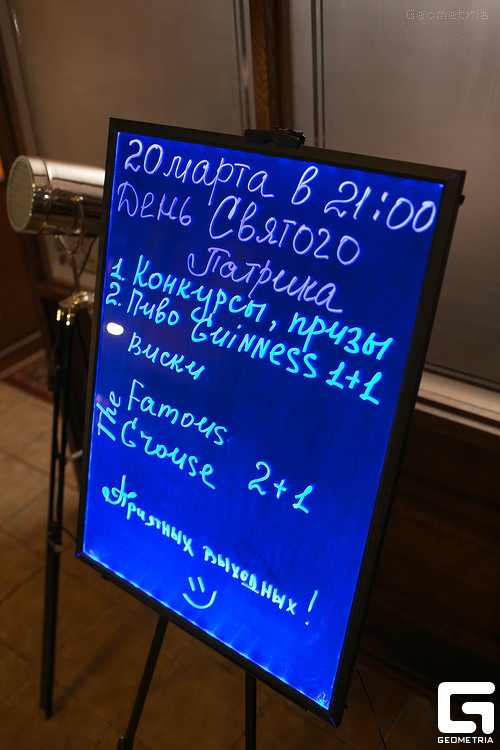 Geometria
20 марта в 21:00
День Святого
Патрика
1. Конкурсы, призы
2. Пиво GUINNESS 1+1
виски
The Famous
Grouse 2+1
Приятных выходных!
GEOMETRIA